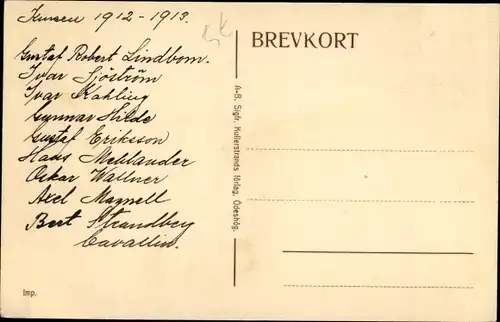 Kursen 1912-1913.
Gustaf Robert Lindbom.
Ivar Sjöström
Ivar Kahling
Gunnar Hilde
Gustaf Eriksson
Hans Mehlander
Oskar Wallner
Axel Magnell
Bert Strandberg
Cavallin.
BREVKORT
A-B. Sigfr. Kullerstrands förlag, Ödeshög.
Imp.